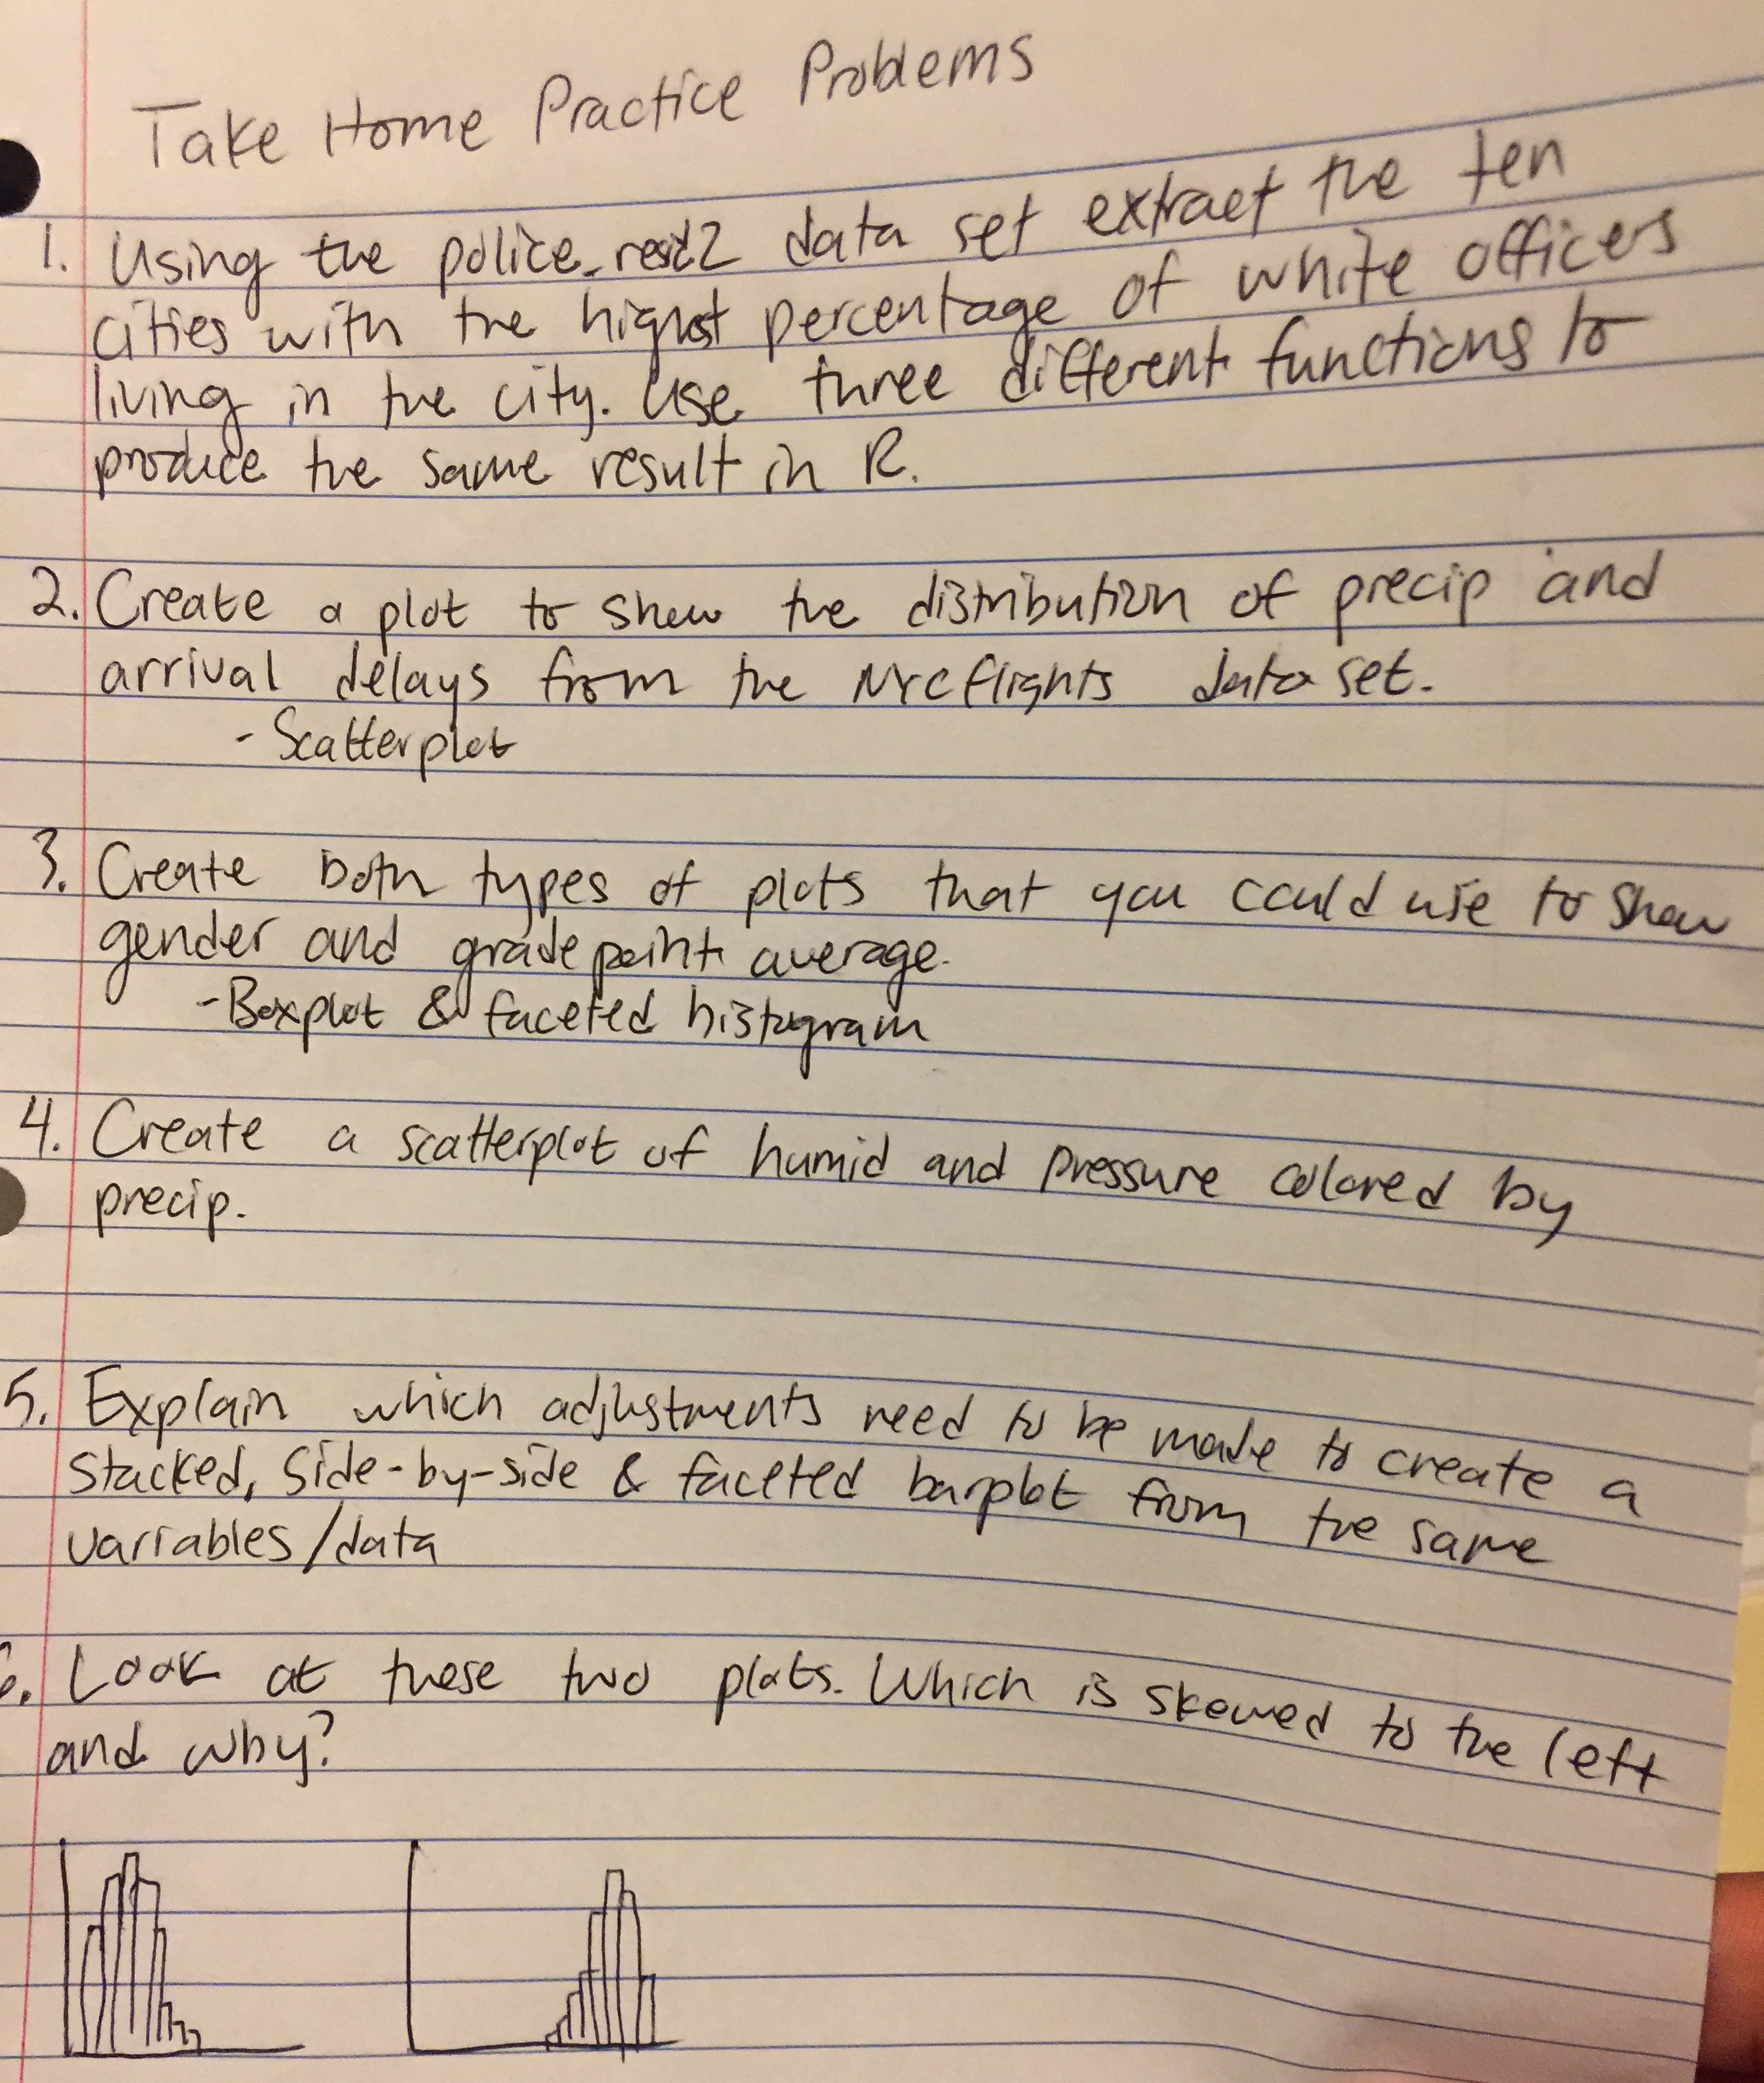 Take Home Practice Problems
1. Using the police_resid2 data set extract the ten
cities with the highest percentage of white officers
living in the city. Use three different functions to
produce the same result in R.
2. Create a plot to show the distribution of precip and
arrival delays from the NYCflights data set.
- Scatterplot
3. Create both types of plots that you could use to show
gender and grade point average.
- Boxplot & faceted histogram
4. Create a scatterplot of humid and pressure colored by
precip.
5. Explain which adjustments need to be made to create a
stacked, side-by-side & faceted barplot from the same
variables/data
6. Look at these two plots. Which is skewed to the left
and why?